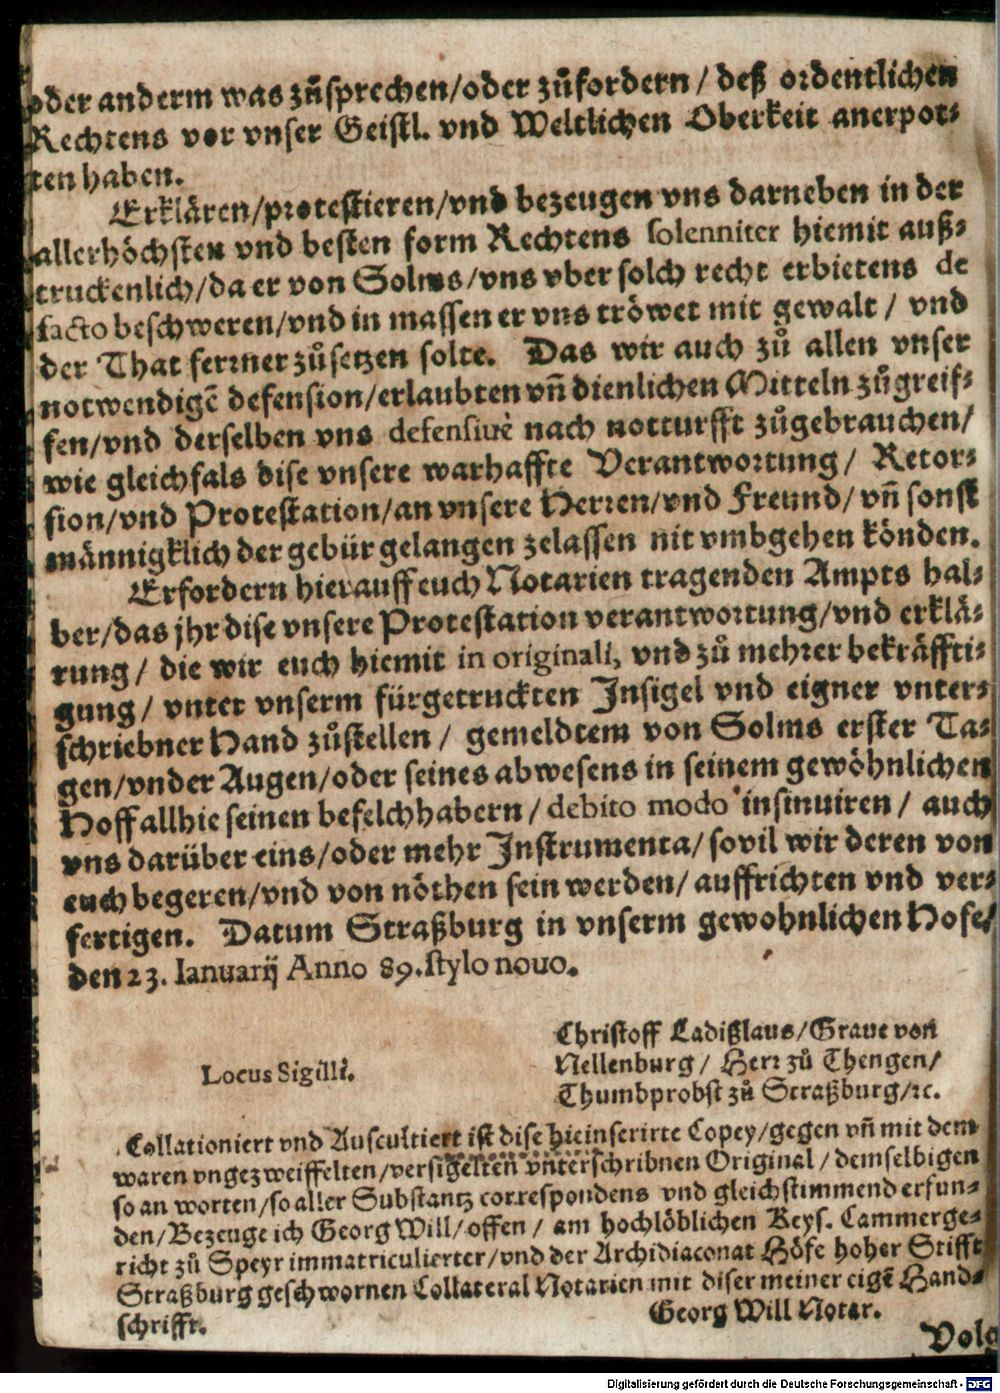 oder anderm was zůsprechen/oder zůfordern / deß ordentlichen
Rechtens vor vnser Geistl. vnd Weltlichen Oberkeit anerpot-
ten haben.
Erklären/protestieren/vnd bezeugen vns darneben in der
allerhöchsten vnd besten form Rechtens solenniter hiemit auß-
truckenlich/da er von Solms/vns vber solch recht erbietens de
facto beschweren/vnd in massen er vns tröwet mit gewalt / vnd
der That ferrner zůsetzen solte. Das wir auch zů allen vnser
notwendigẽ defension/erlaubten vñ dienlichen Mitteln zůgreif-
fen/vnd derselben vns defensiuè nach notturfft zůgebrauchen/
wie gleichfals dise vnsere warhaffte Verantwortung/ Retor-
sion/vnd Protestation/an vnsere Herren/vnd Freund/ vñ sonst
männigklich der gebür gelangen zelassen nit vmbgehen könden.
Erfordern hierauff euch Notarien tragenden Ampts hal-
ber/das jhr dise vnsere Protestation verantwortung/vnd erklä-
rung / die wir euch hiemit in originali, vnd zů mehrer bekräffti-
gung / vnter vnserm fürgetruckten Insigel vnd eigner vnter-
schriebner Hand zůstellen / gemeldtem von Solms erster Ta-
gen/vnder Augen/oder seines abwesens in seinem gewöhnlichen
Hoff allhie seinen befelchhabern / debito modo insinuiren / auch
vns darüber eins/oder mehr Instrumenta/ sovil wir deren von
euch begeren/vnd von nöthen sein werden/ auffrichten vnd ver-
fertigen. Datum Straßburg in vnserm gewohnlichen Hofe/
den 23. Ianuarij Anno 89. stylo nouo.
Christoff Ladißlaus/Graue von
Nellenburg / Herr zů Thengen/
Thumbprobst zů Straßburg/ꝛc.
Locus Sigilli.
Collationiert vnd Auscultiert ist dise hieinserirte Copey/gegen vñ mit dem
waren vngezweiffelten/versigelten vnterschribnen Original / demselbigen
so an worten/so aller Substantz correspondens vnd gleichstimmend erfun-
den/Bezeuge ich Georg Will/ offen / am hochlöblichen Keys. Cammerge-
richt zů Speyr immatriculierter/vnd der Archidiaconat Höfe hoher Stifft
Straßburg geschwornen Collateral Notarien mit diser meiner eigẽ Hand-
schrifft.
Georg Will Notar.
Volg
Digitalisierung gefördert durch die Deutsche Forschungsgemeinschaft - DFG